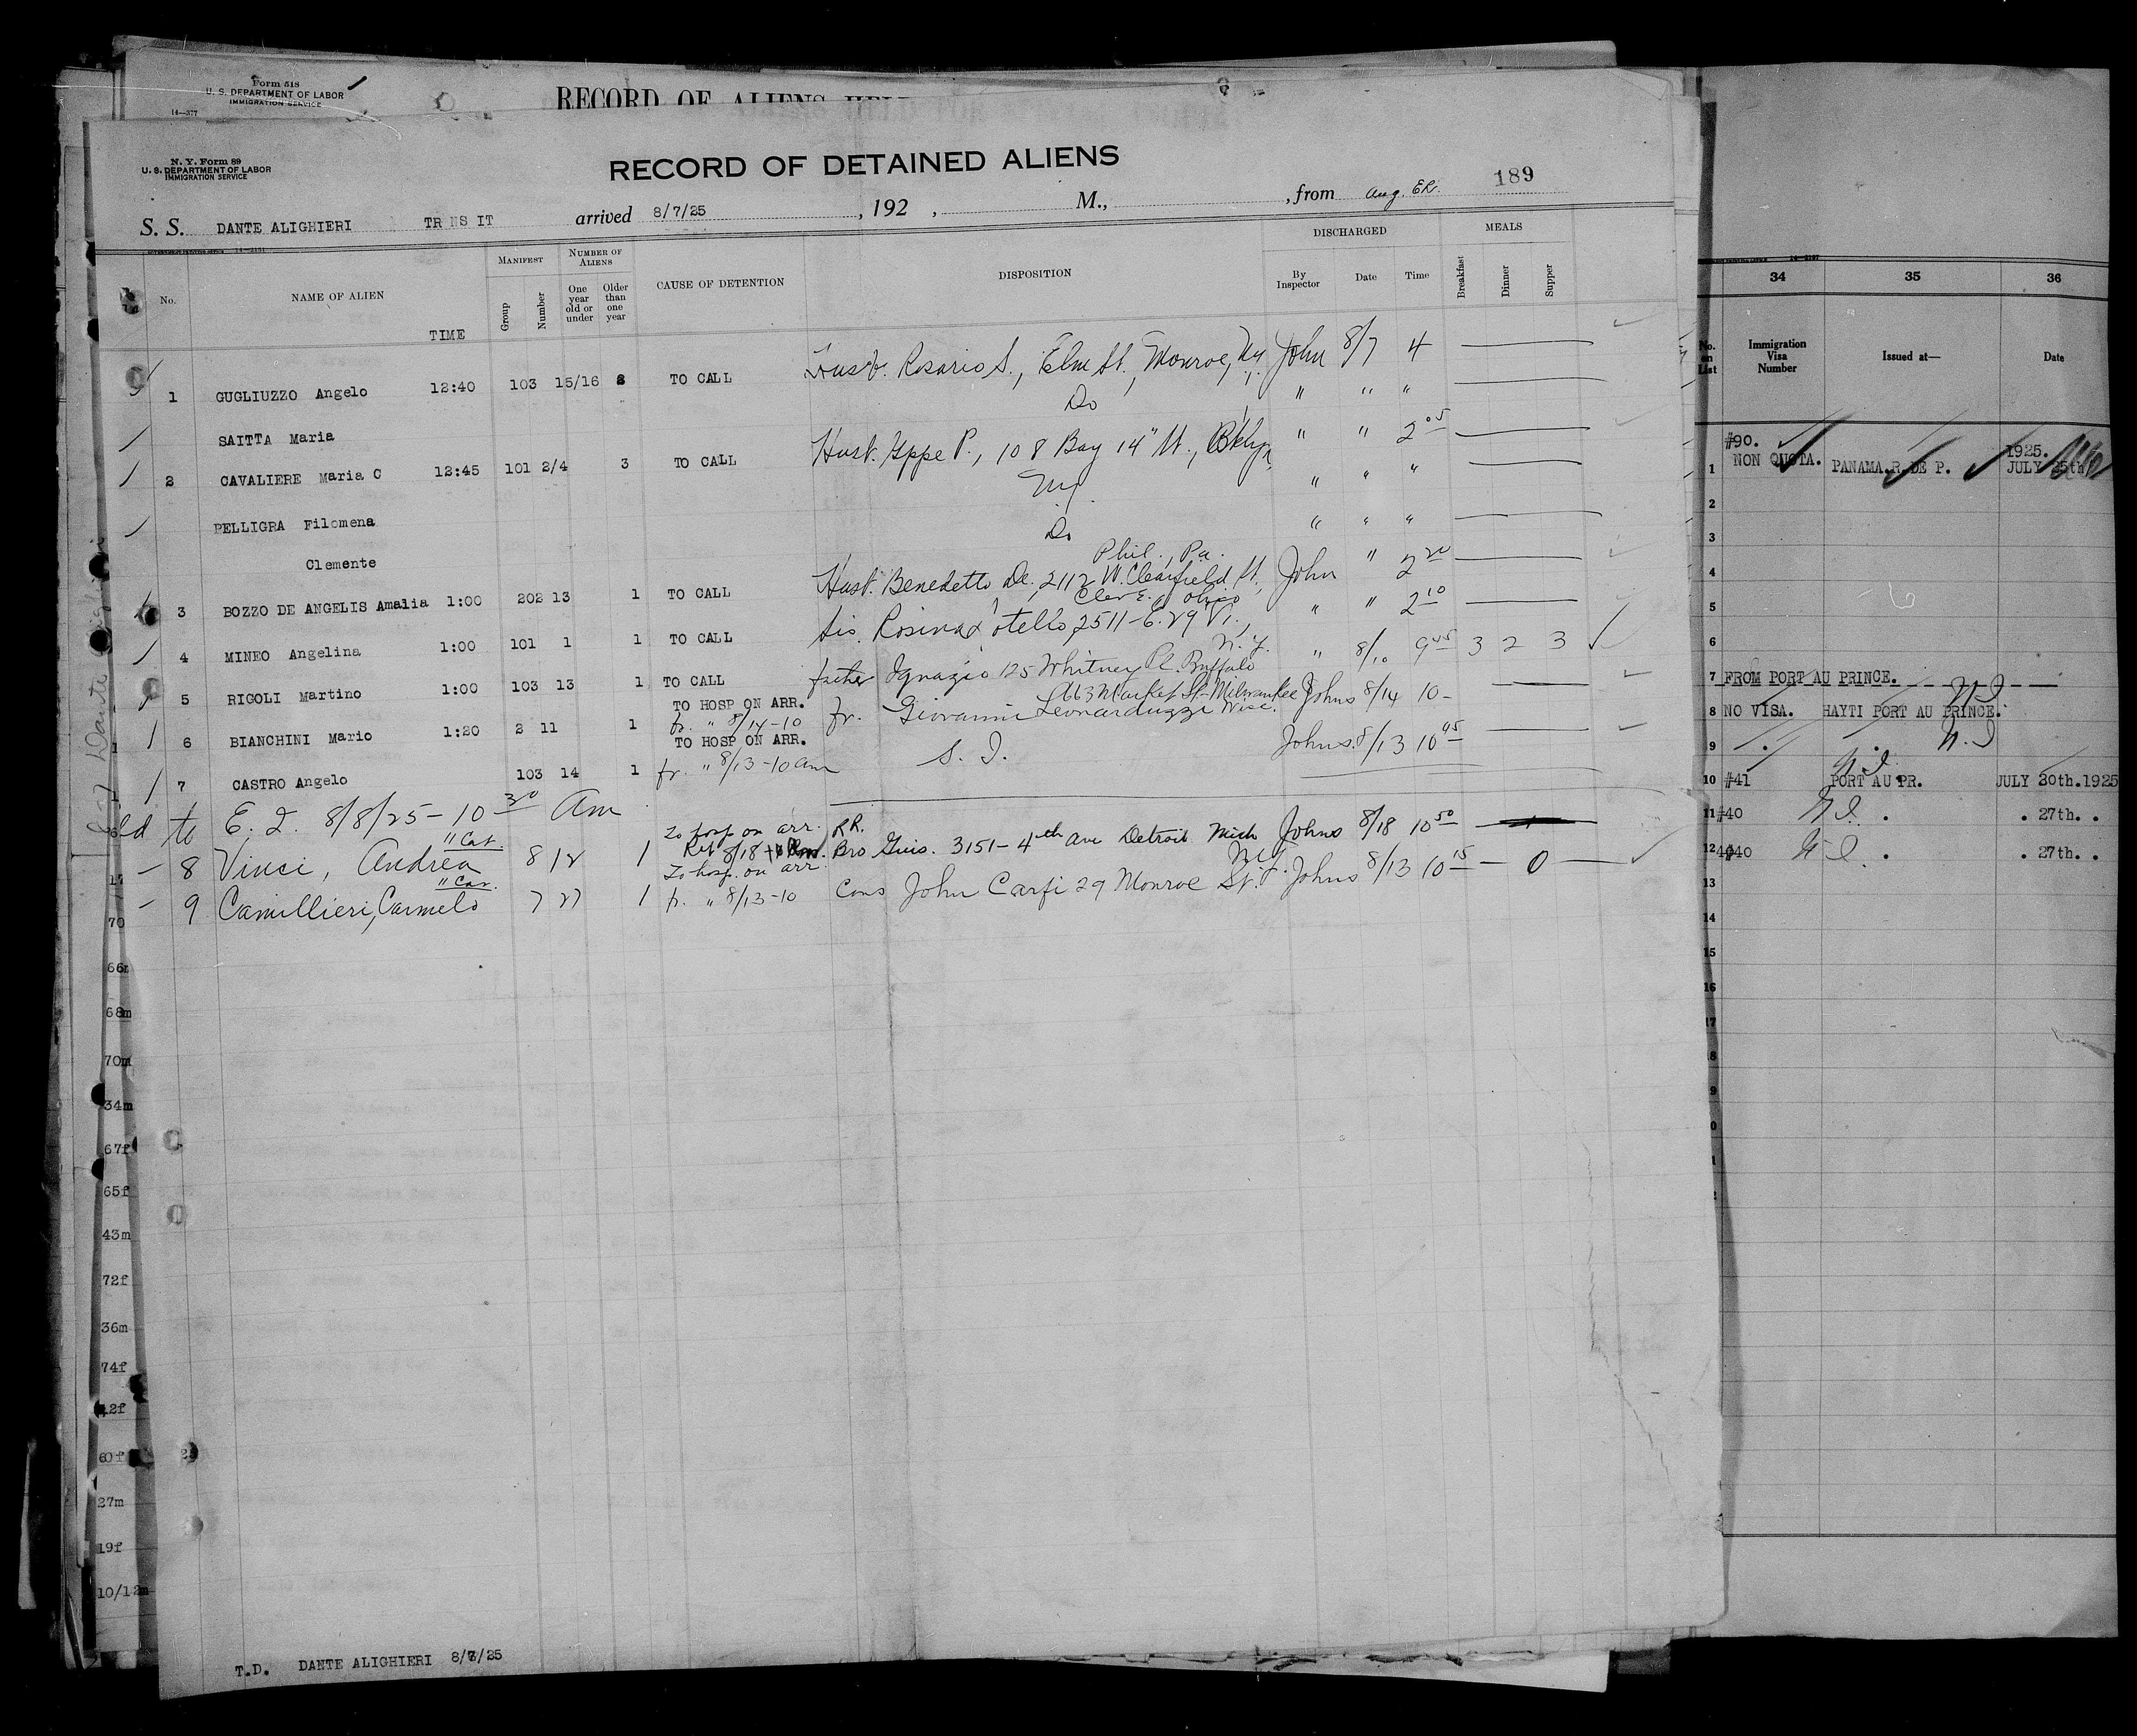 Form 518
U. S. DEPARTMENT OF LABOR
IMMIGRATION SERVICE
14—377
RECORD OF ALIENS
N. Y. Form 89
U. S. DEPARTMENT OF LABOR
IMMIGRATION SERVICE
RECORD OF DETAINED ALIENS
189
S. S. DANTE ALIGHIERI TR NS IT arrived 8/7/25 , 192 , M., , from Aug. ER.
No. NAME OF ALIEN TIME MANIFEST Group Number NUMBER OF ALIENS One year old or under Older than one year CAUSE OF DETENTION DISPOSITION DISCHARGED By Inspector Date Time MEALS Breakfast Dinner Supper
1 GUGLIUZZO Angelo 12:40 103 15/16 2 TO CALL Husb. Rosario S., Elm St., Monroe, N.Y. John 8/7 4
SAITTA Maria Do " " "
2 CAVALIERE Maria C 12:45 101 2/4 3 TO CALL Husb. Gppe P., 108 Bay 14" St., Bklyn, " " 2 05
NY. " " "
PELLIGRA Filomena
Clemente Do " " "
3 BOZZO DE ANGELIS Amalia 1:00 202 13 1 TO CALL Husb. Benedetto De., 2112 W. Clearfield St., Phil., Pa. John " 2 20
4 MINEO Angelina 1:00 101 1 1 TO CALL Sis. Rosina 2511-E. 29 Cleve. Ohio " " 2 10
5 RIGOLI Martino 1:00 103 13 1 TO CALL father Ignazio 125 Whitney Pl. Buffalo N.Y. " 8/10 9 45 3 2 3
6 BIANCHINI Mario 1:20 2 11 1 TO HOSP ON ARR. fr. " 8/14-10 fr. Giovanni Leonarduzzi 663 Market St. Milwaukee Wisc. Johns 8/14 10-
7 CASTRO Angelo 103 14 1 TO HOSP ON ARR. fr. " 8/13-10 am S. I. Johns. 8/13 10 45
to E. I. 8/8/25 - 10 30 Am
8 Vinci, Andrea 8 12 1 To hosp on arr. 8/18 RR. Bro Guis. 3151-4th Ave Detroit Mich Johns 8/18 10 50
9 Camillieri, Carmelo 7 27 1 To hosp. on arr. fr. " 8/13-10 Cous John Carfi 29 Monroe St. N.Y. Johns 8/13 10 15 - 0 -
70
66m
68m
70m
34m
67f
65f
43m
72f
36m
74f
42f
60f
27m
19f
10/12m
T.D. DANTE ALIGHIERI 8/7/25
34 35 36
No. on List Immigration Visa Number Issued at— Date
1 #90. NON QUOTA. PANAMA.R.DE P. 1925. JULY 25th
2
3
4
5
6
7 FROM PORT AU PRINCE.
8 NO VISA. HAYTI PORT AU PRINCE.
9
10 #41 PORT AU PR. JULY 30th.1925
11 #40 . . 27th. .
12 #40 . . 27th. .
13
14
15
16
17